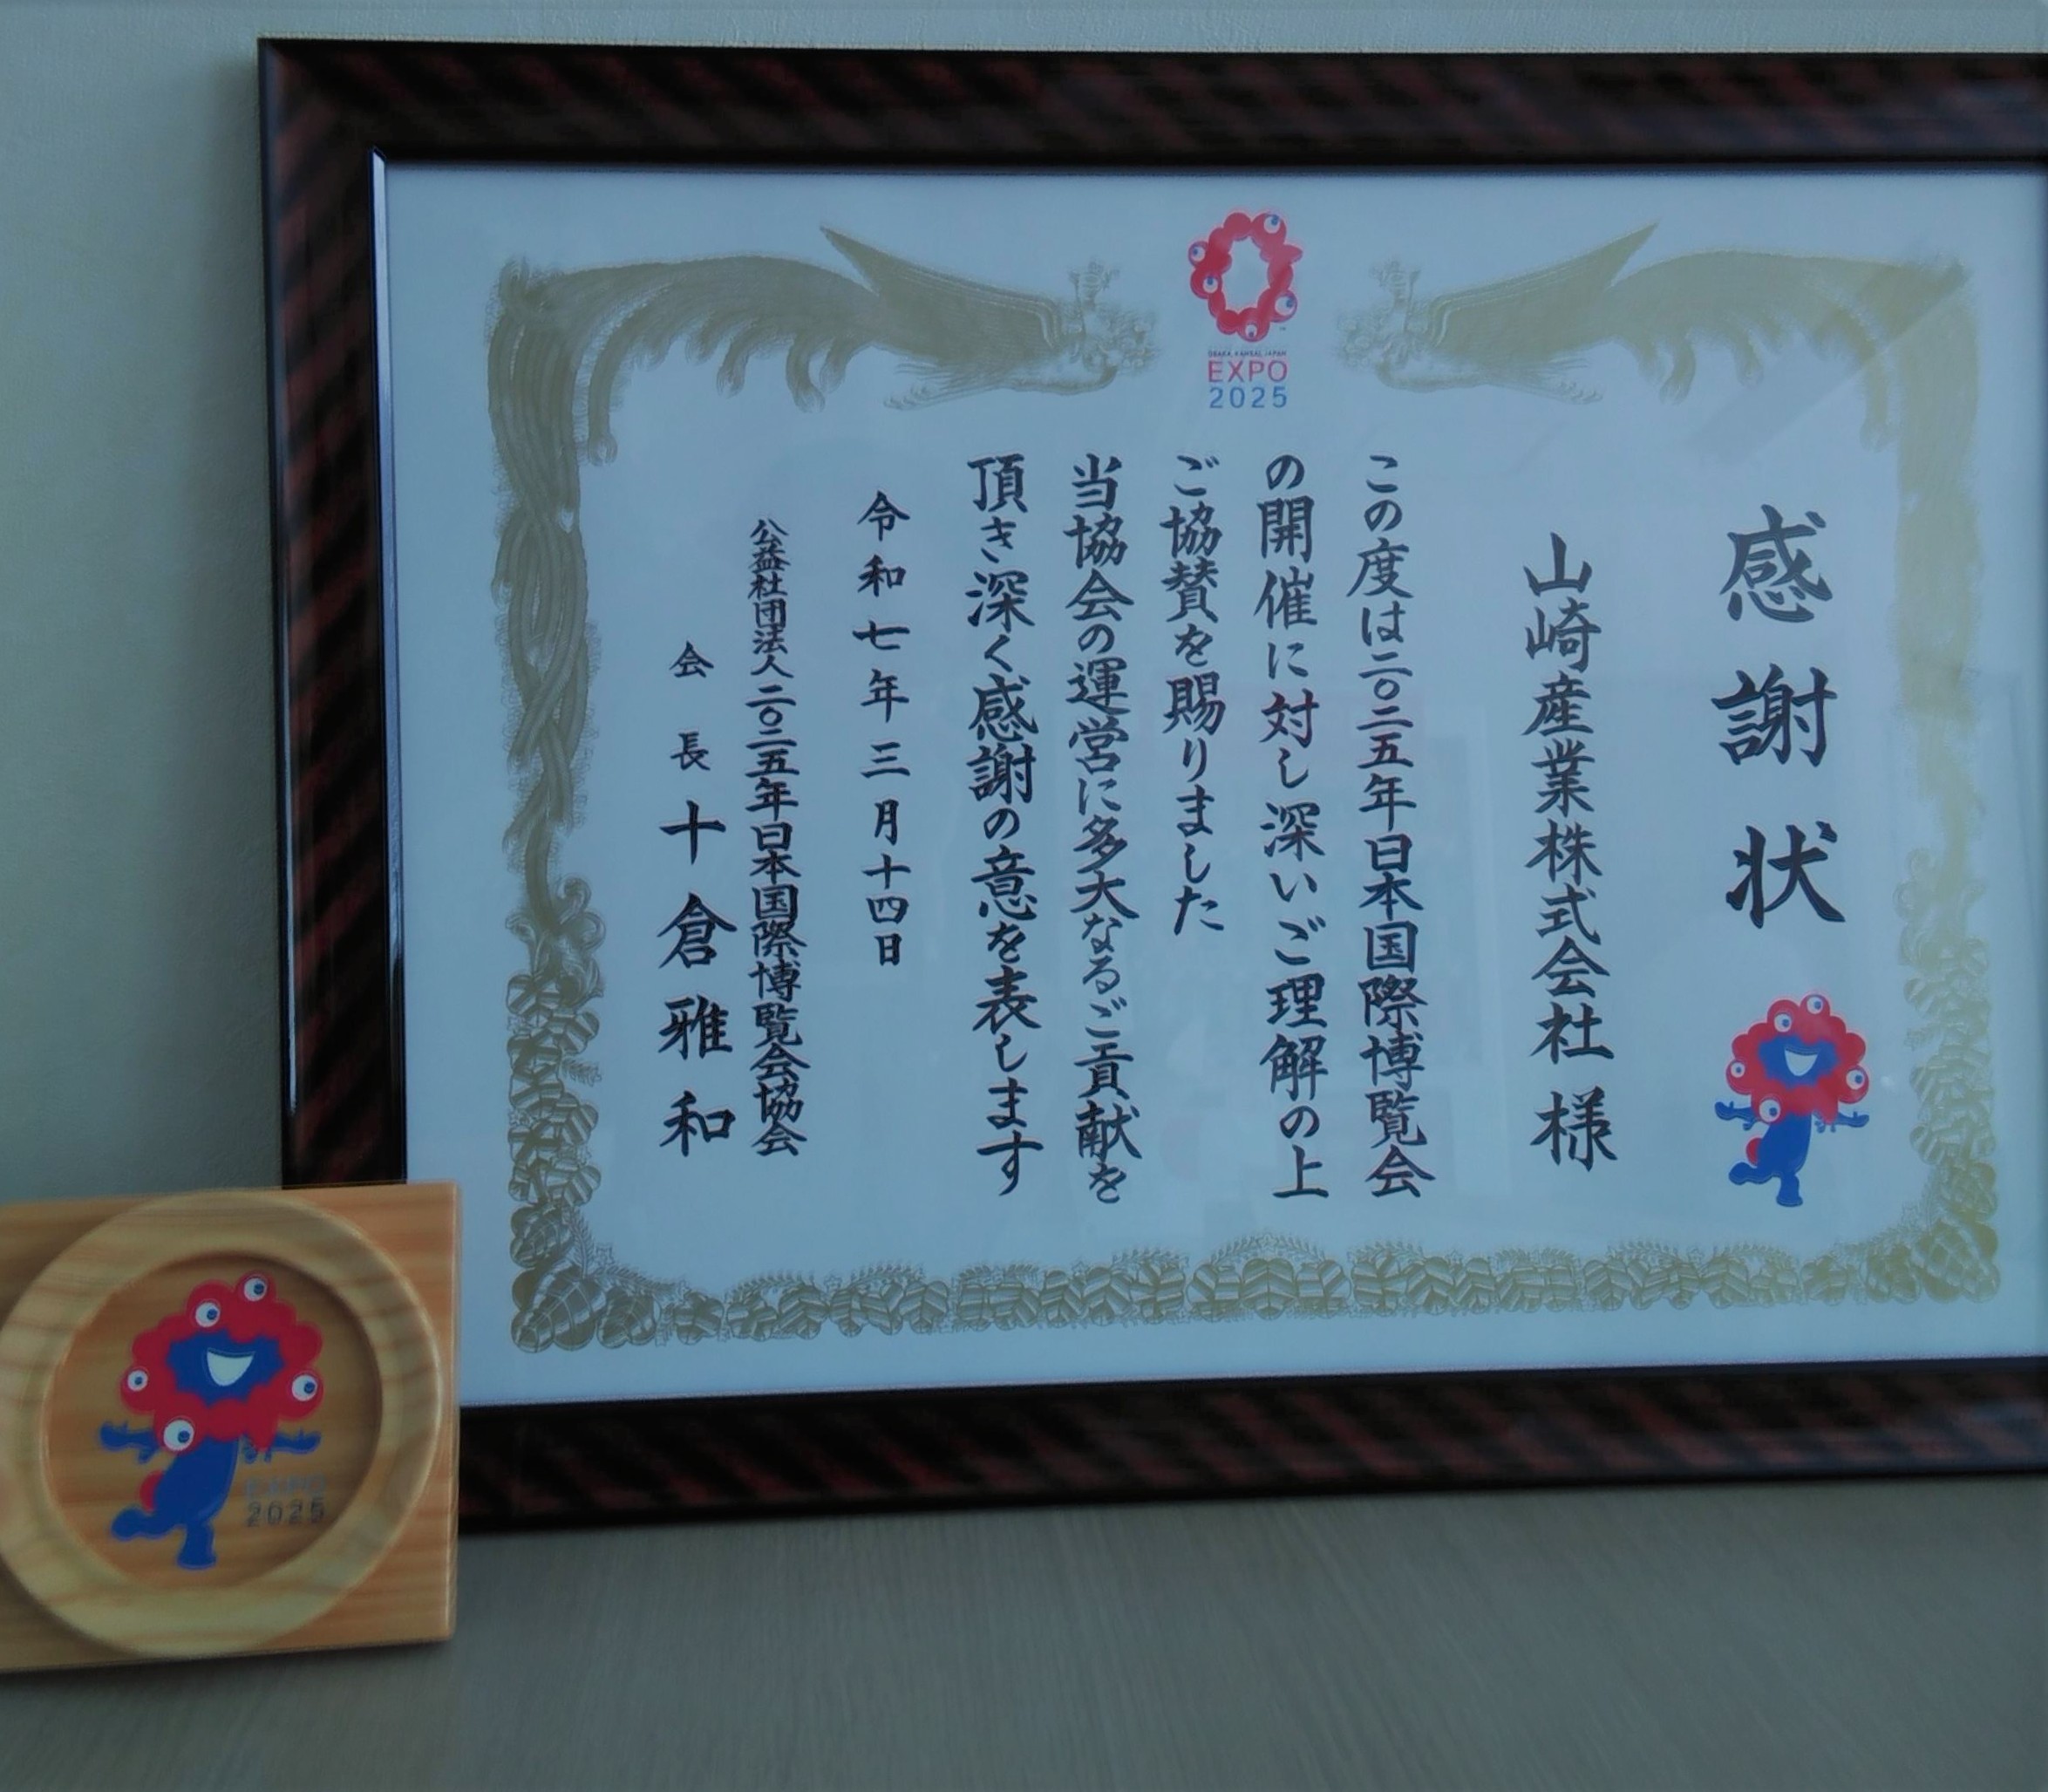 感謝状
山崎産業株式会社 様
この度は二〇二五年日本国際博覧会
の開催に対し深いご理解の上
ご協賛を賜りました
当協会の運営に多大なるご貢献を
頂き深く感謝の意を表します
令和七年三月十四日
公益社団法人二〇二五年日本国際博覧会協会
会長 十倉雅和
OSAKA, KANSAI, JAPAN
EXPO
2025
EXPO
2025